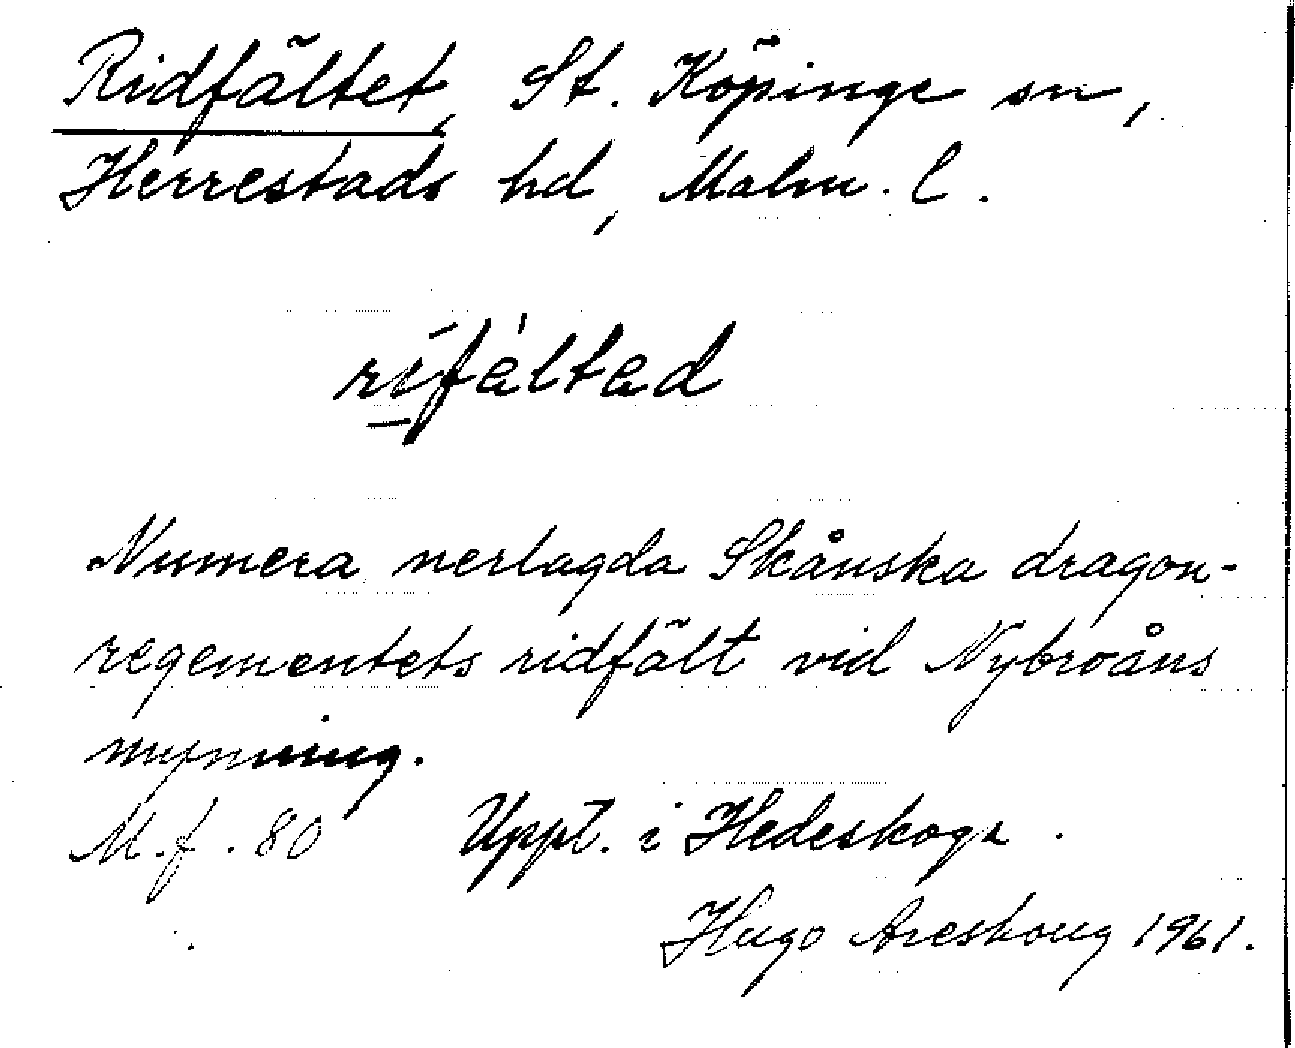 Ridfältet, St. Köpinge sn,
Herrestads hd, Malm. l.
rifältad
Numera nerlagda Skånska dragon-
regementets ridfält vid Nybroåns
mynning.
M.f. 80 Uppt. i Hedeskoga.
Hugo Areskoug 1961.